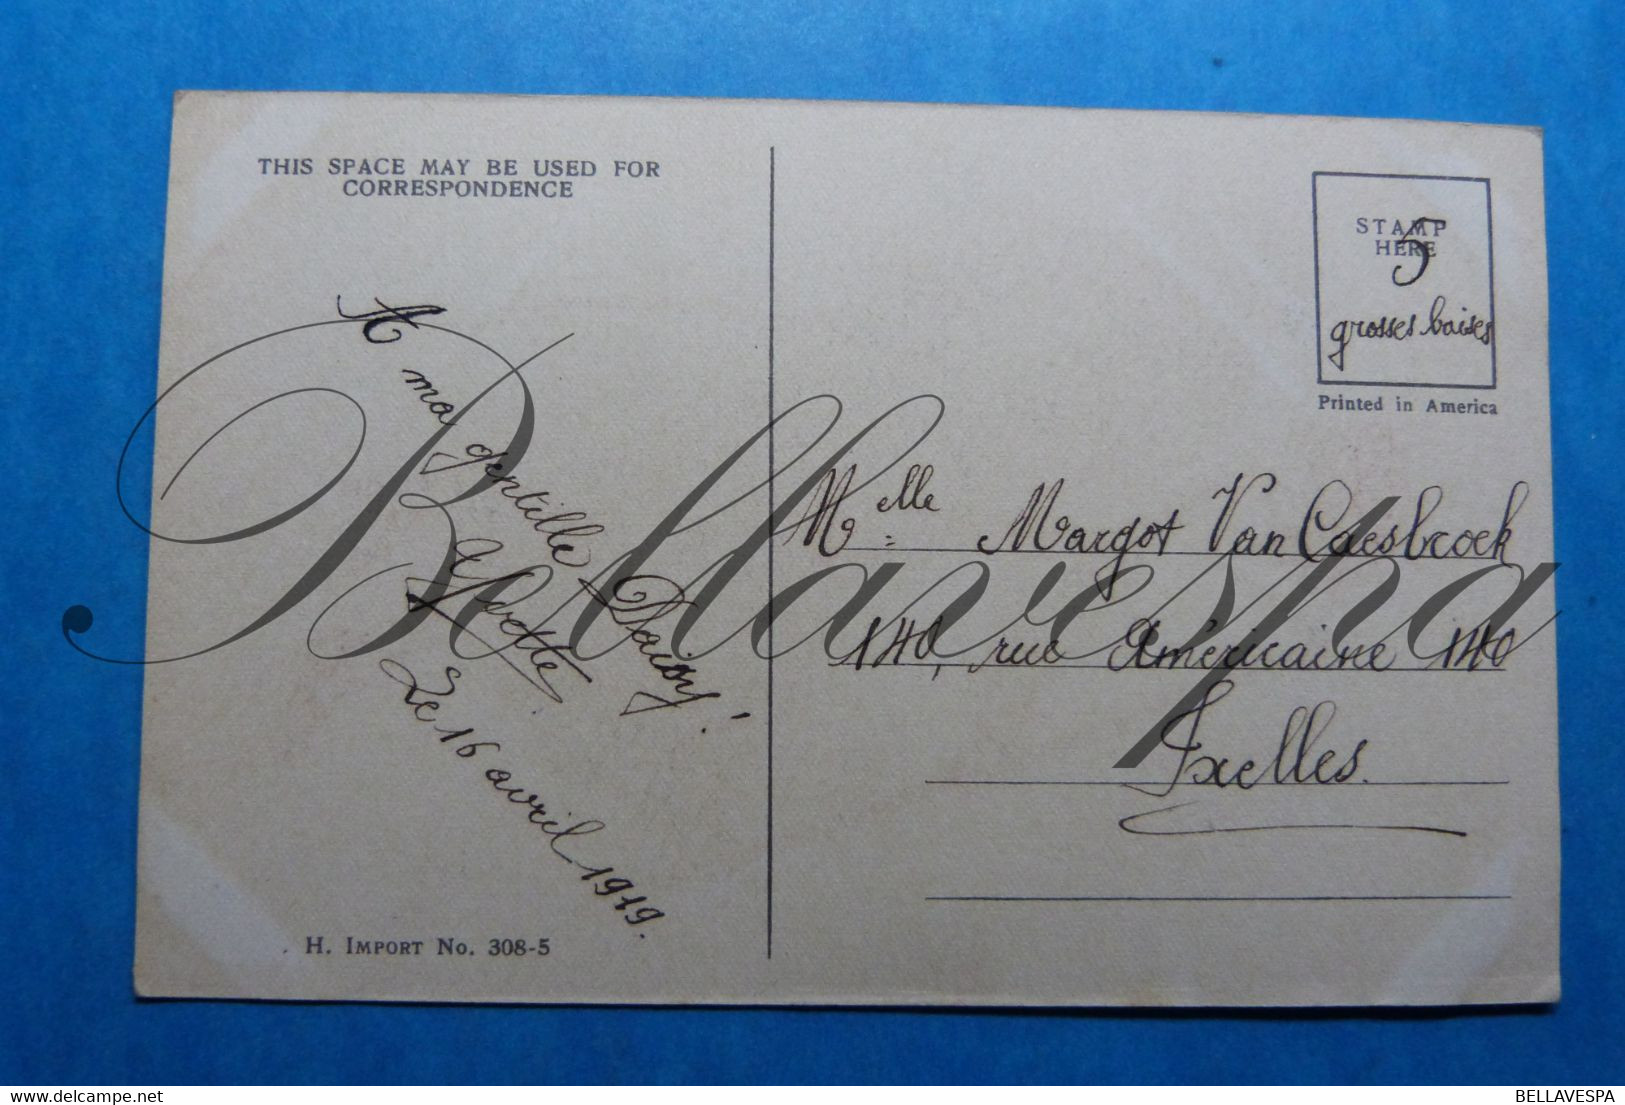 THIS SPACE MAY BE USED FOR
CORRESPONDENCE
A ma gentille Daisy!
Le 16 avril 1919.
H. IMPORT No. 308-5
STAMP
HERE
5
grosses baises
Printed in America
Melle Margot Van Caesbroek
140, rue Américaine 140
Ixelles.
Bellavespa
BELLAVESPA